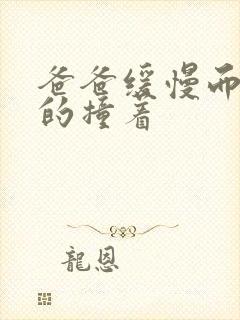 爸爸缓慢而
的撞着
龍恩